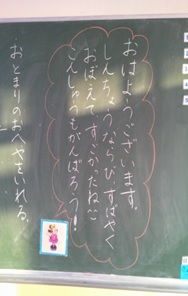 おはようございます。
しんちょうならび、すばやく
おぼえて、すごかったね!!
こんしゅうもがんばろう!
おとまりのおへやをいれる。